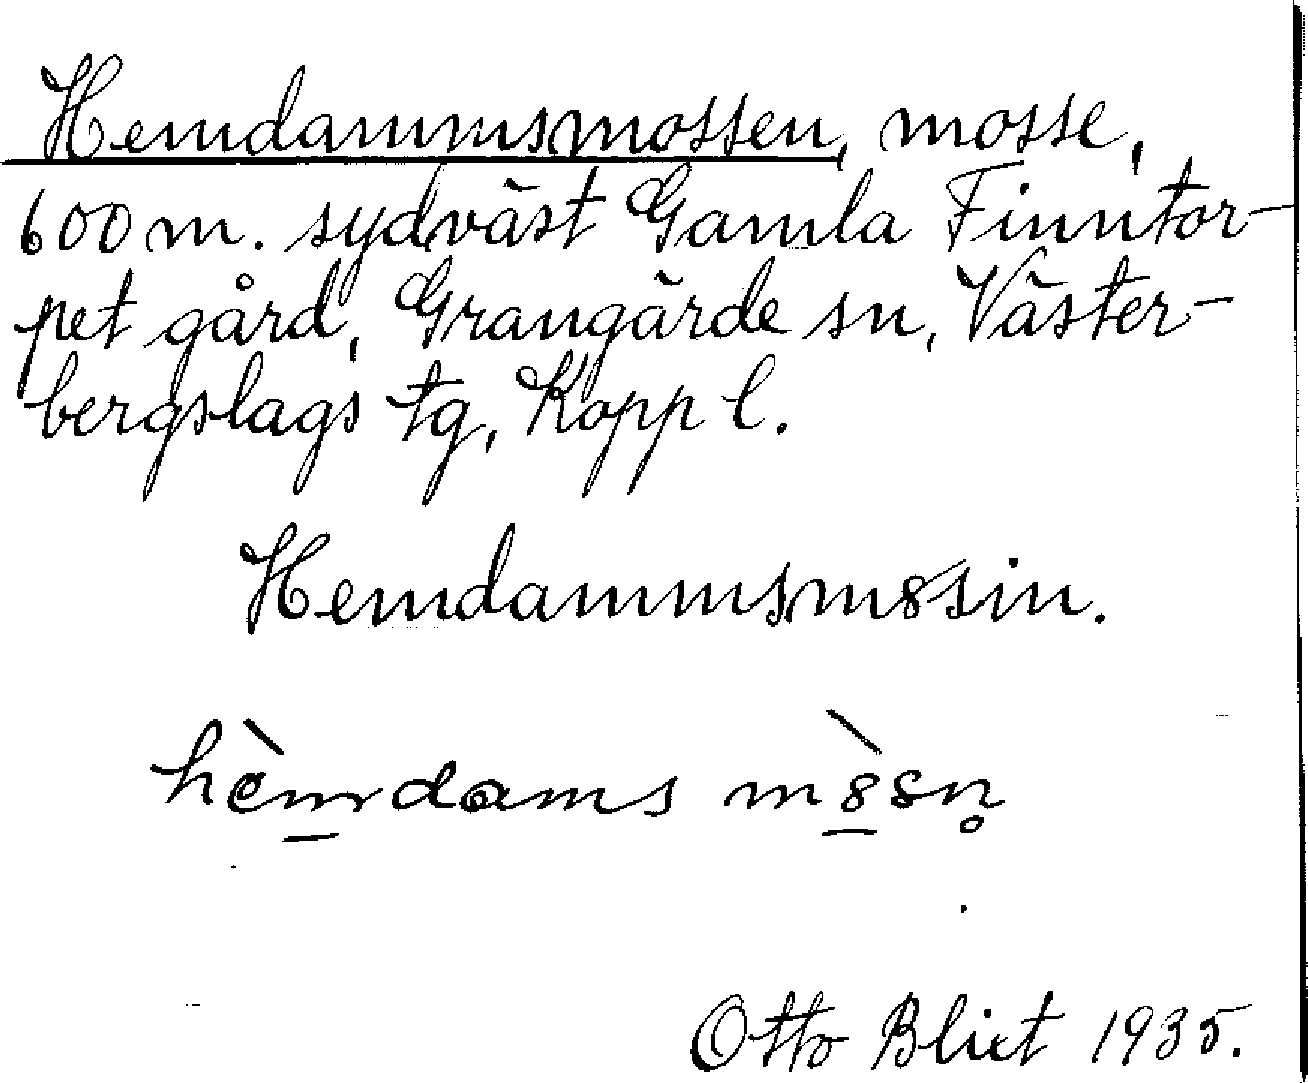 Hemdammsmossen, mosse,
600 m. sydväst Gamla Finntor-
pet gård, Grangärde sn, Väster-
bergslags tg, Kopp l.
Hemdammsm8sin.
hèm̲dams m8̲̀sn̥
Otto Blixt 1935.